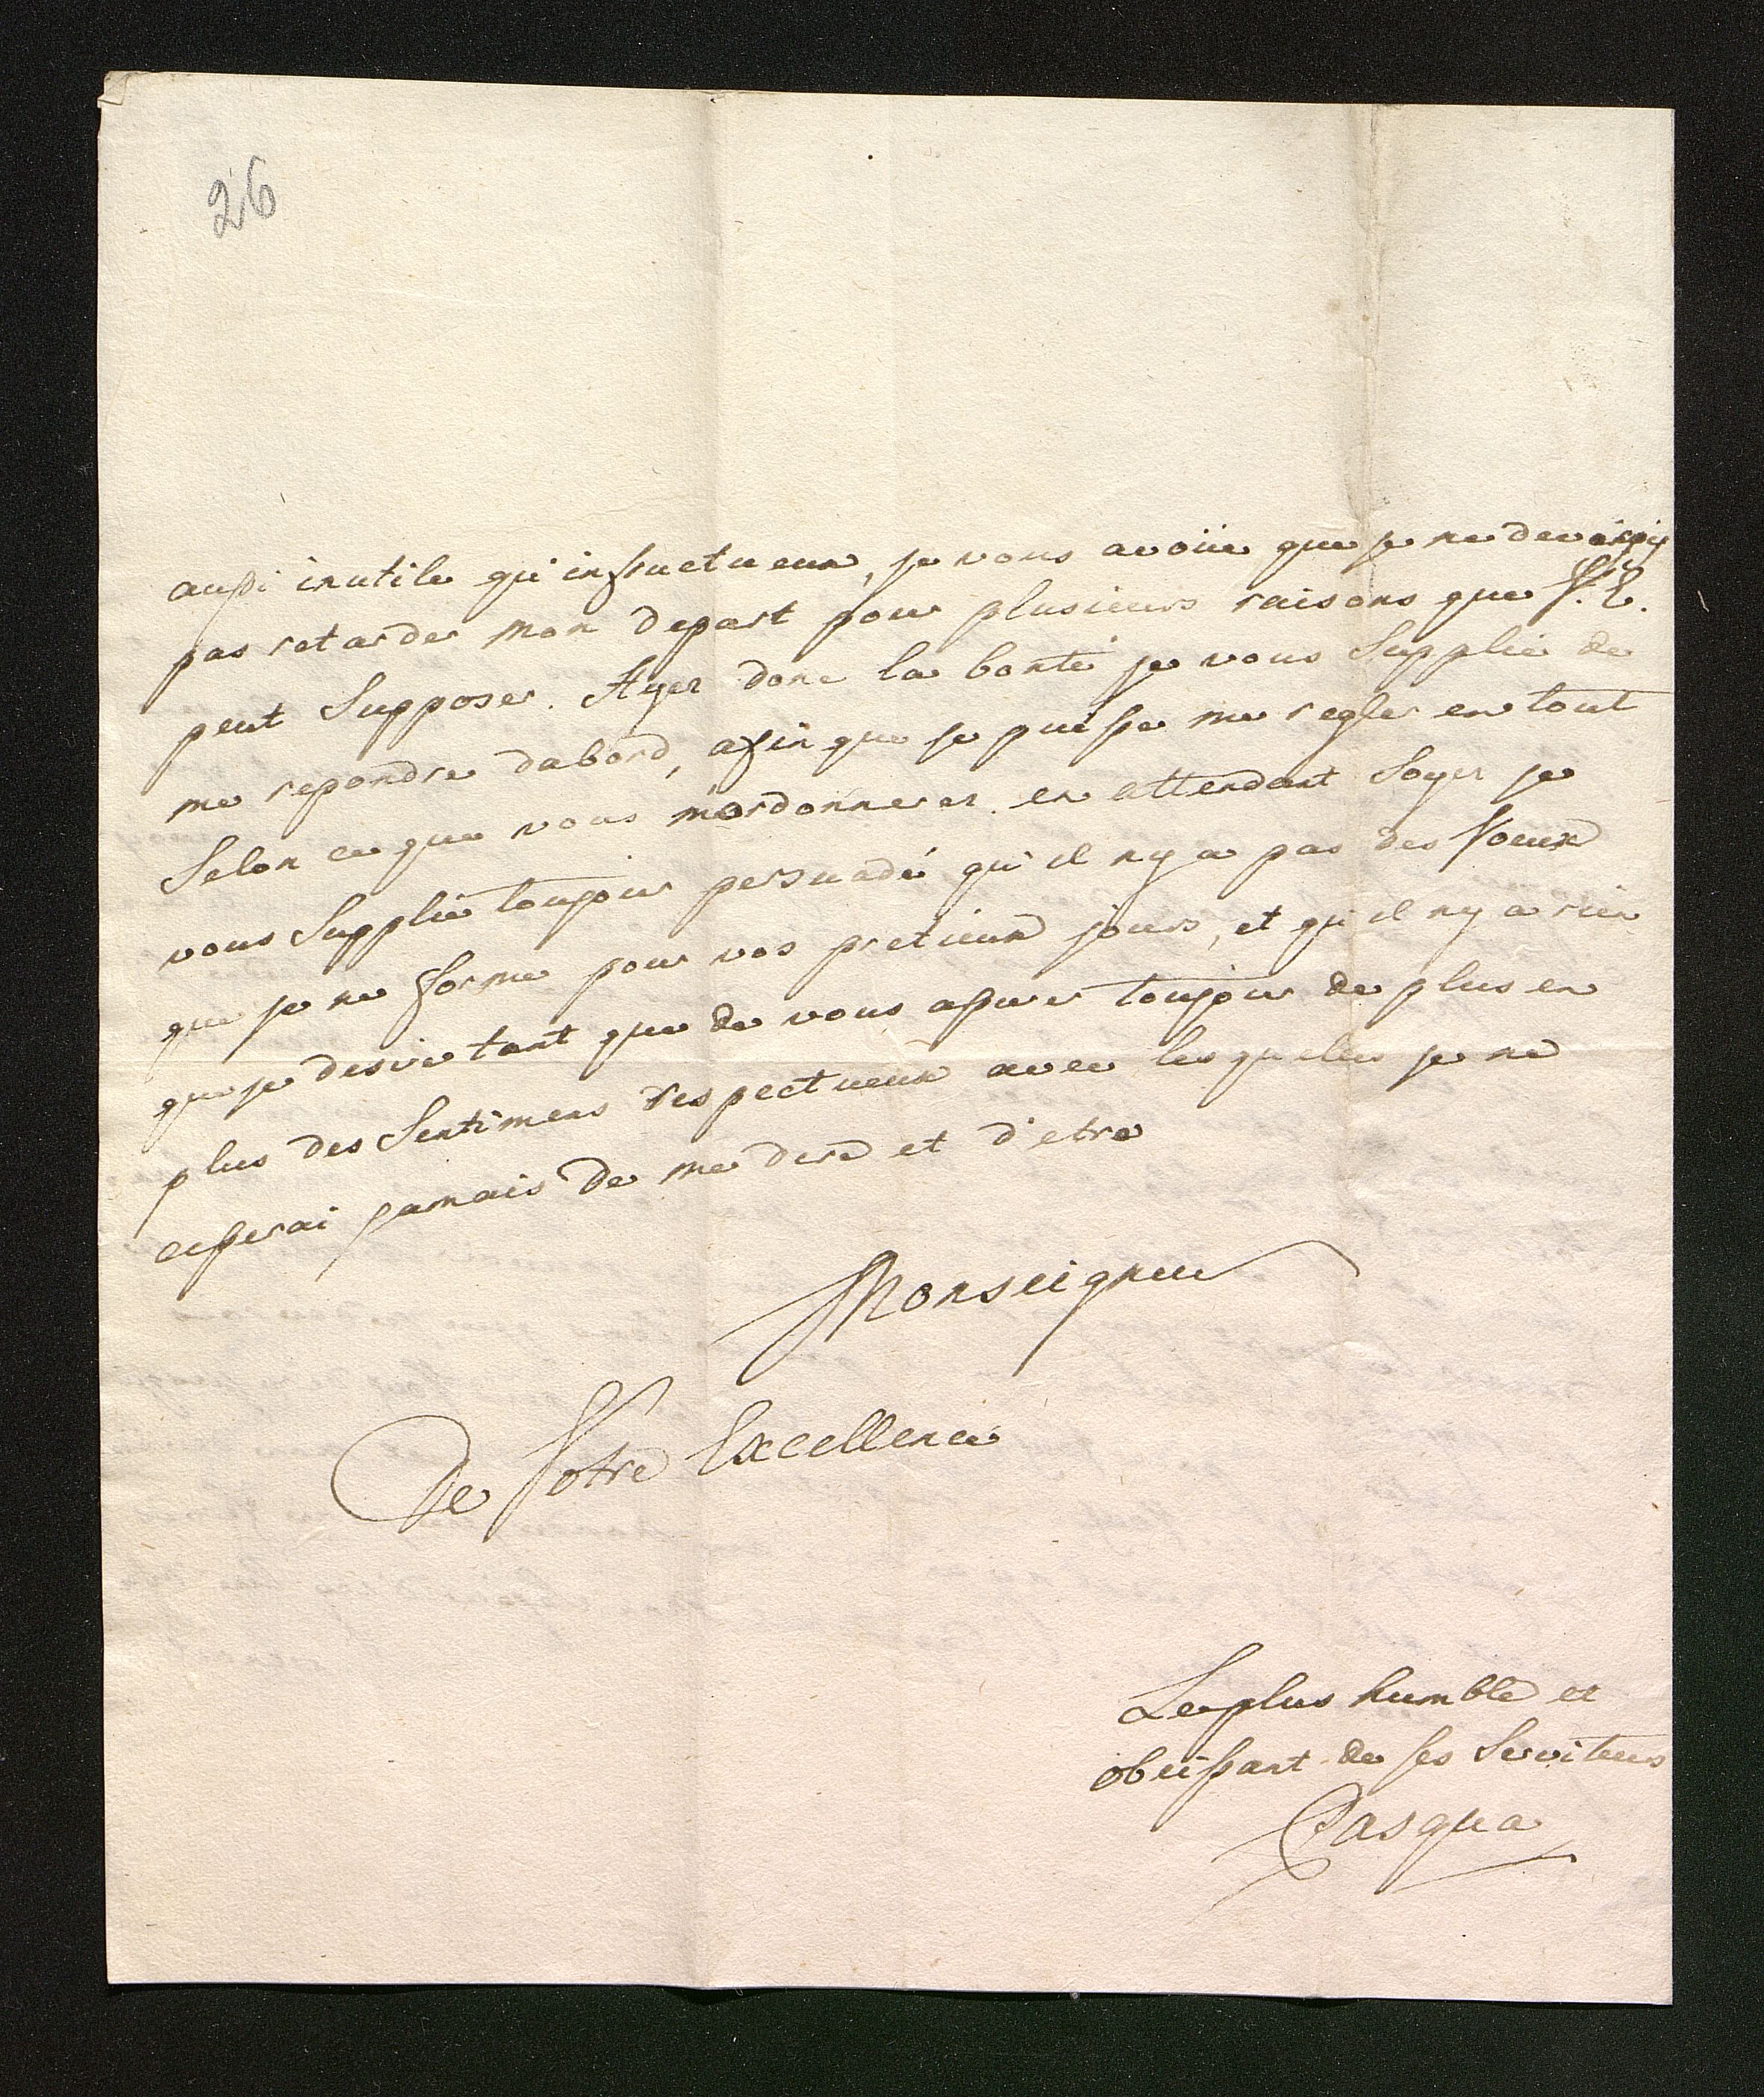 26
aussi inutile qu'infructueux, je vous avoüe que je ne devois
pas retarder mon depart pour plusieurs raisons que V. E.
peut Supposer. Ayez donc la bonté je vous Supplie de
me repondre dabord, afin que je puisse me regler en tout
Selon ce que vous m'ordonnerez. en attendant Soyez je
vous Supplie toujour persuadé qu'il ny a pas des Voeux
que je ne forme pour vos pretieux jours, et qu'il ny a rien
que je desire tant que de vous assurer toujour de plus en
plus des Sentimens respectueux avec lesqueles je ne
cesserai jamais de me dire et d'etre
Monseigneur
De Votre Excellence
Le plus humble et
obeissant de ses Serviteurs
Pasqua